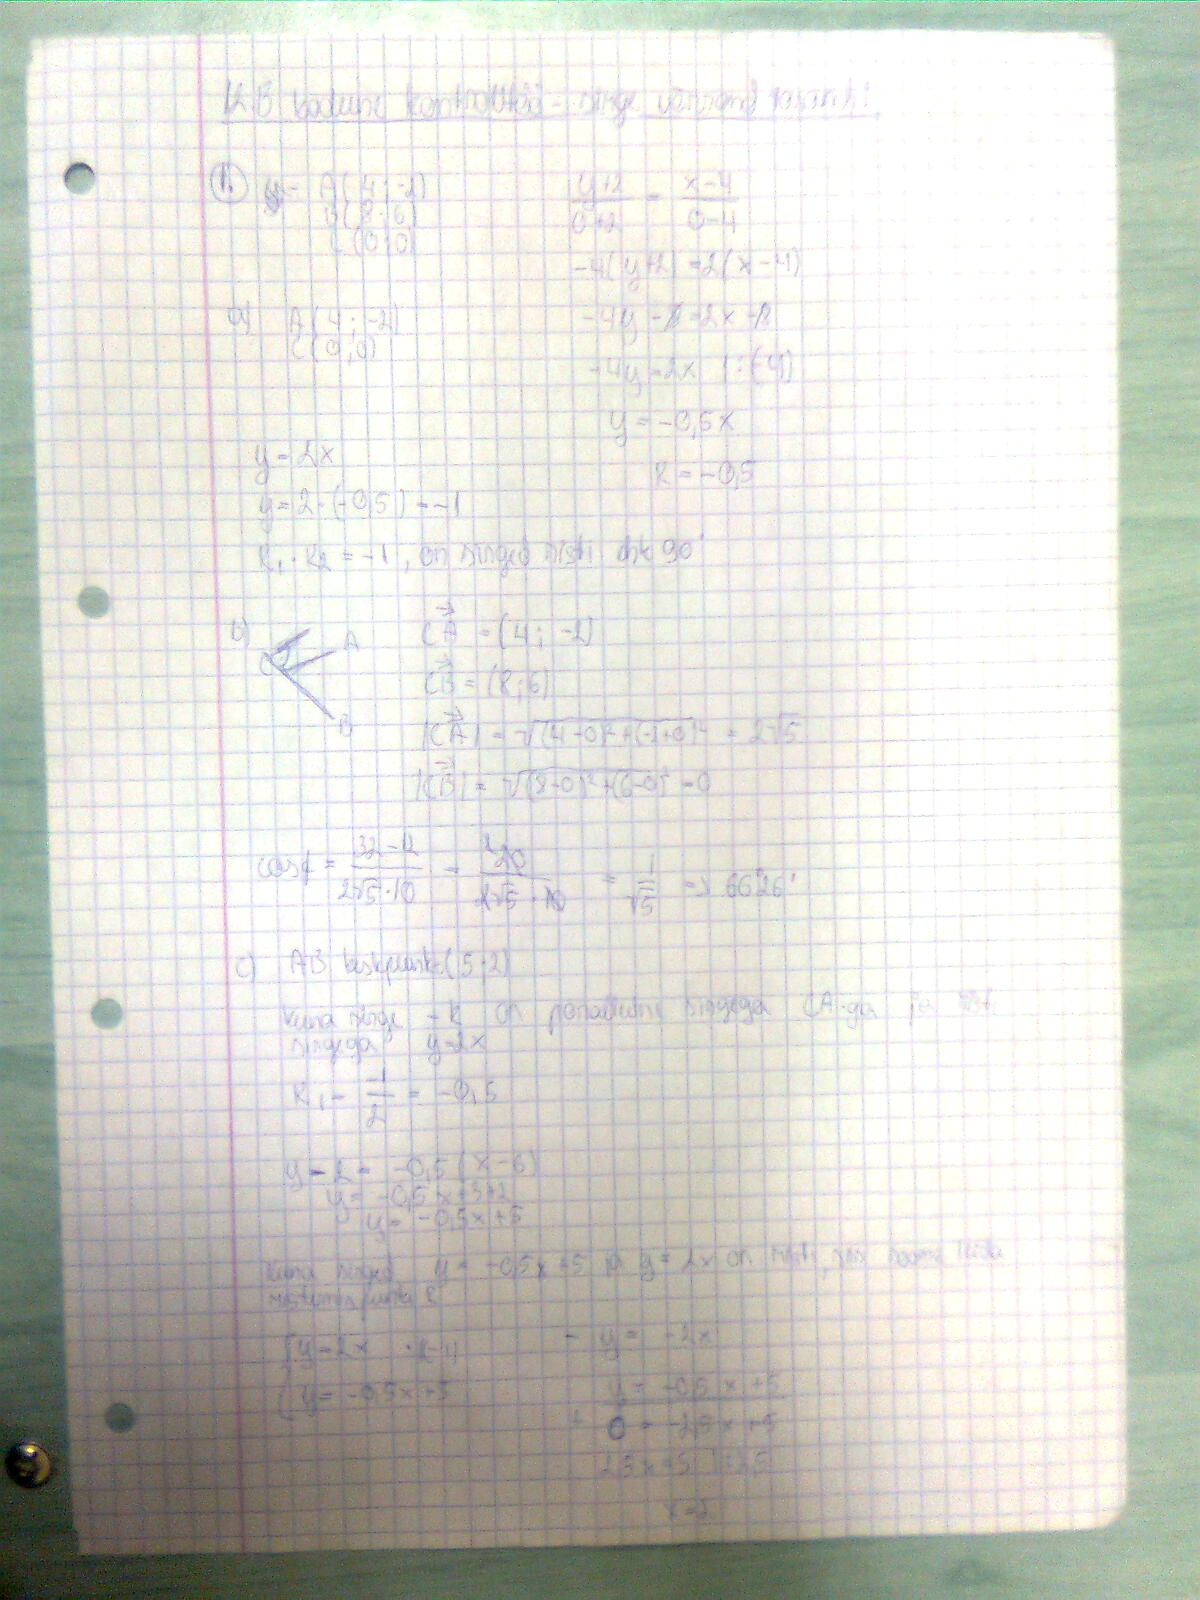 KB kodune kontrolltöö - sirge võrrand tasandil!
1. A(4; -2)
B(8; 6)
C(0; 0)
y+2/0+2 = x-4/0-4
-4(y+2) = 2(x-4)
a) A(4; -2)
C(0; 0)
-4y-8=2x-8
-4y=2x |:(-4)
y=-0,5x
k=-0,5
y=2x
y=2·(-0,5)=-1
K₁·K₂=-1, on sirged risti ehk 90°
b) C A B
CA = (4; -2)
CB = (8; 6)
|CA| = √(4-0)²+(-2+0)² = 2√5
|CB| = √(8-0)²+(6-0)²
cosφ = 32-12/2√5·10 = 20/2√5·10 = 1/√5 => 66°26'
c) AB keskpunkt (5; 2)
Kuna sirge -k on paralleelne sirgega CA-ga ja risti
sirgega y=2x
K₁ - 1/2 = -0,5
y-2 = -0,5(x-6)
y = -0,5x+3+2
y = -0,5x+5
Kuna sirged y = -0,5x+5 ja y=2x on risti, siis saame leida
{y=2x
y=-0,5x+5
- y = -2x
y = -0,5x+5
0 = -2,5x+5
2,5x=5
x=2